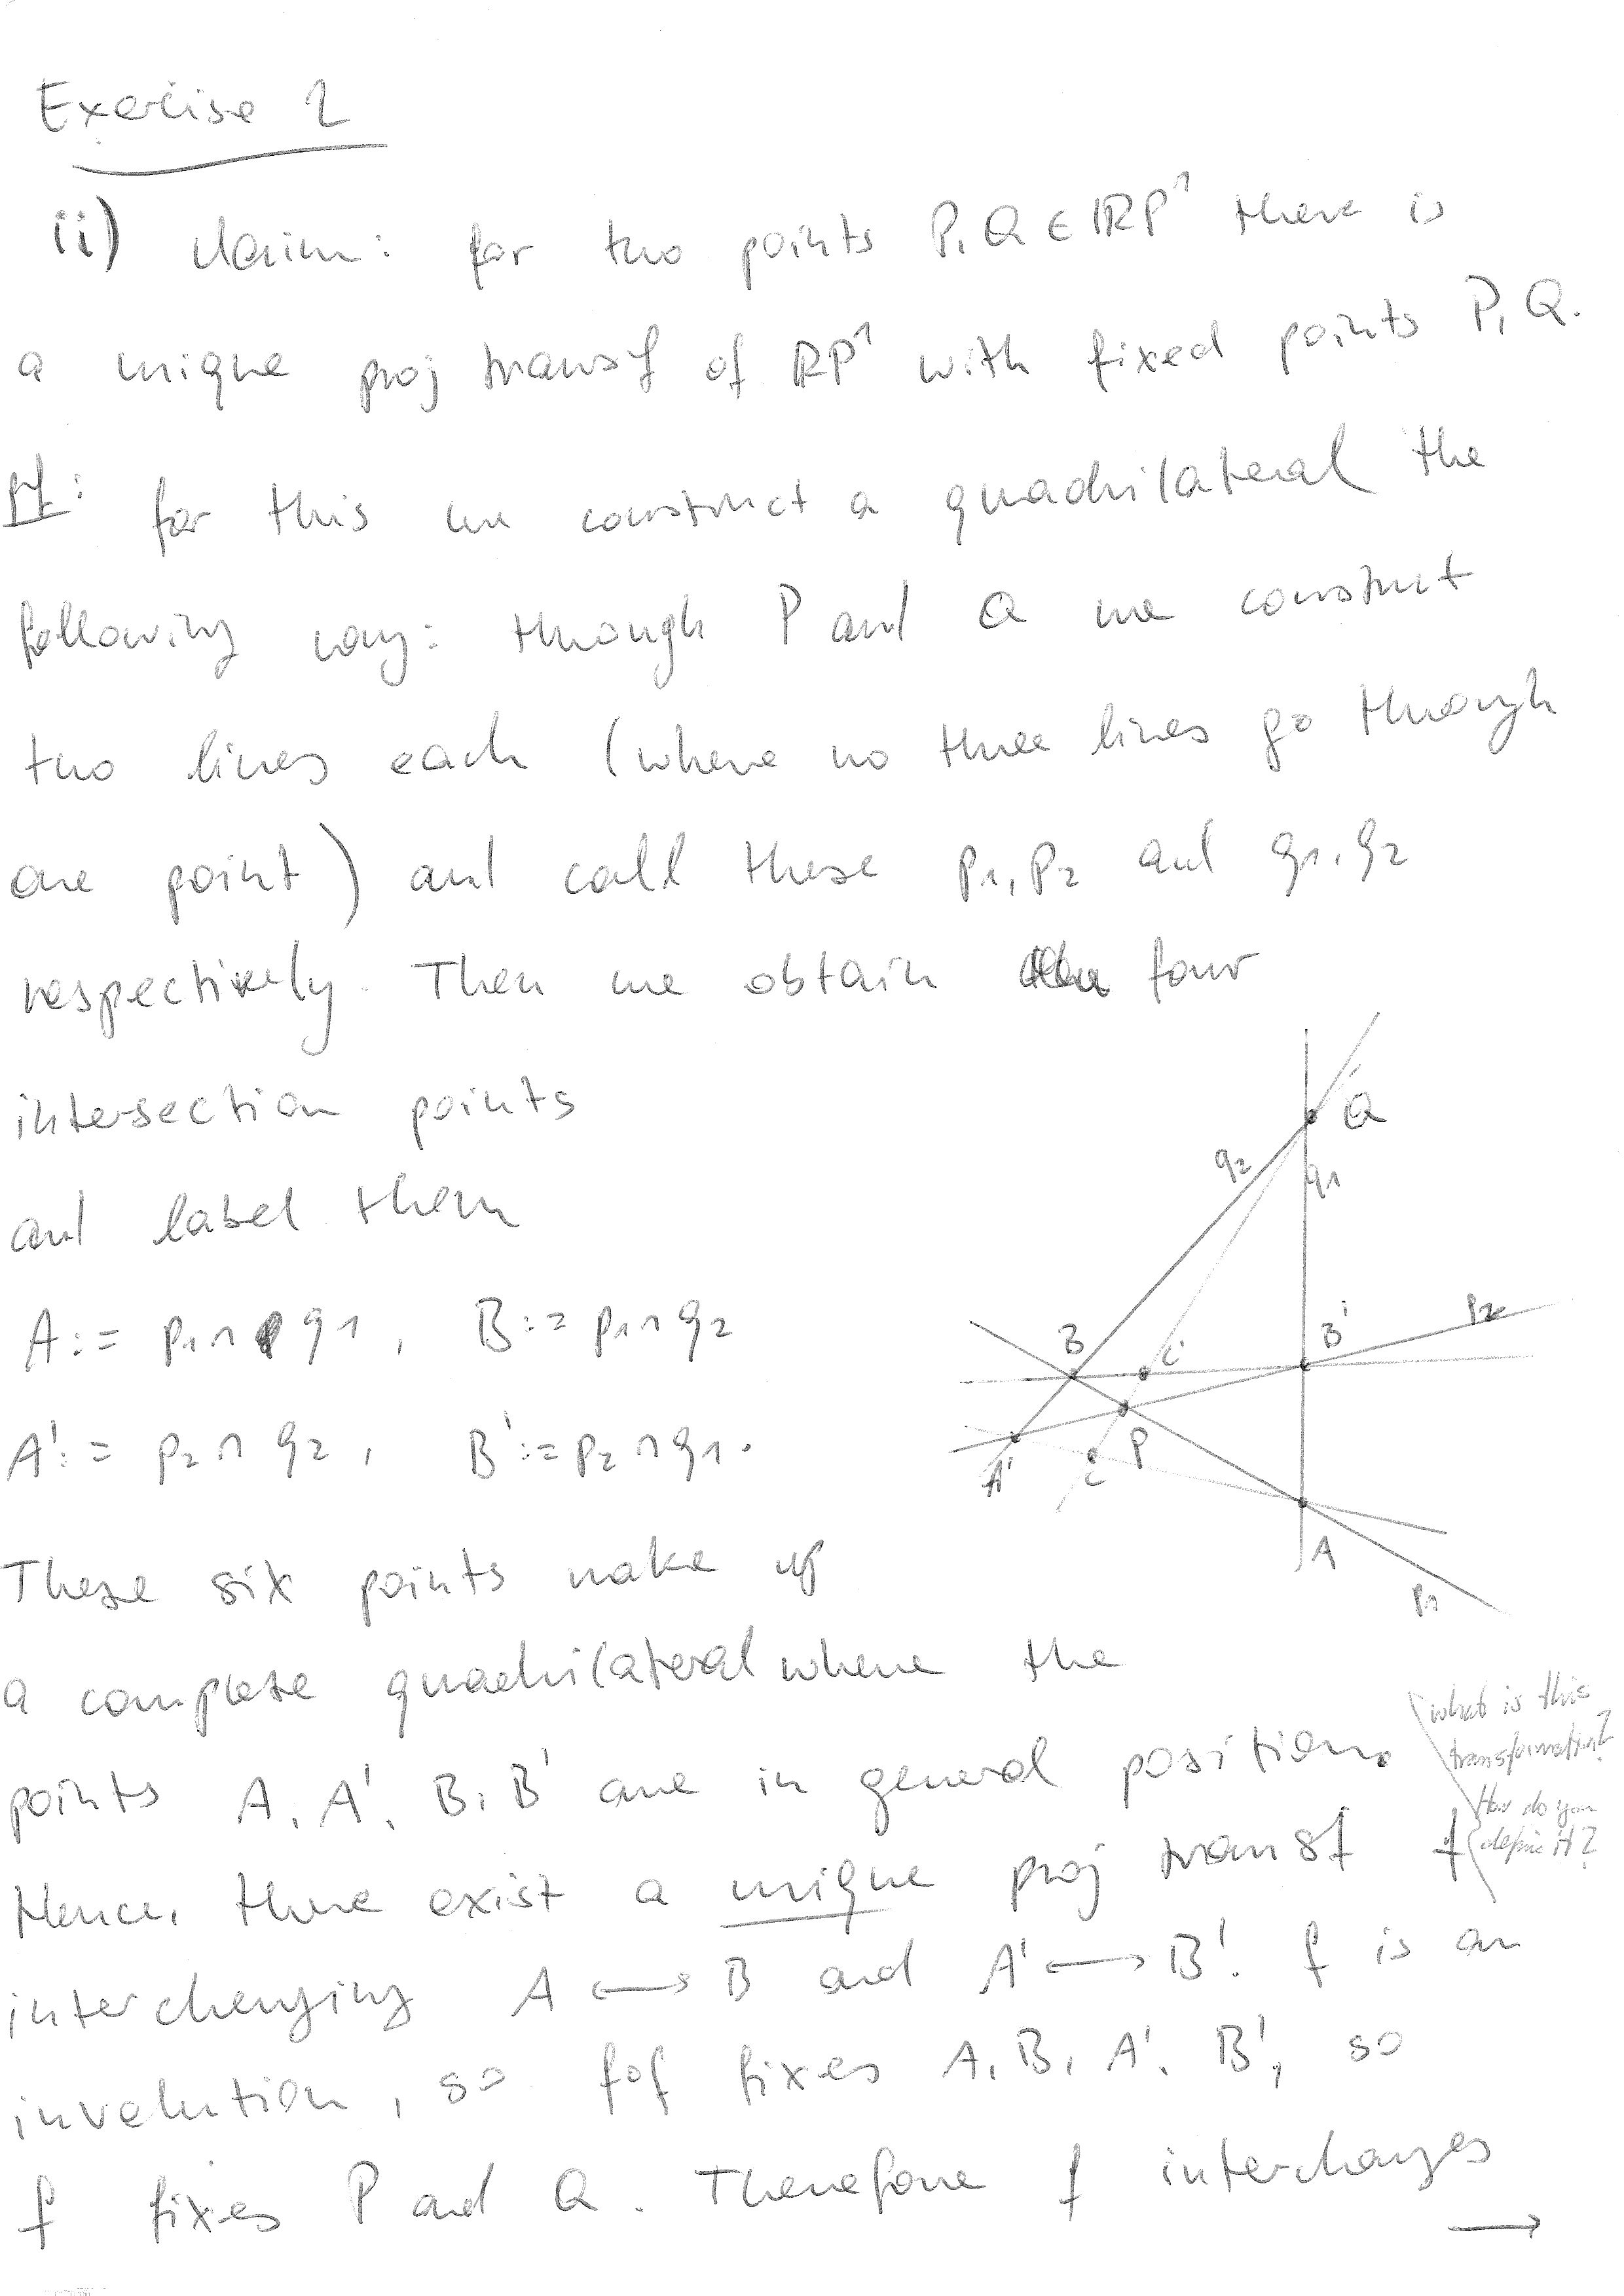 Exercise 2
ii) Claim: for two points P, Q ∈ ℝP¹ there is
a unique proj transf of ℝP¹ with fixed points P, Q.
Pf: for this we construct a quadrilateral the
following way: through P and Q we construct
two lines each (where no three lines go through
one point) and call these p₁, p₂ and q₁, q₂
respectively. Then we obtain four
intersection points
and label them
A := p₁ ∩ q₁, B := p₁ ∩ q₂
A' := p₂ ∩ q₂, B' := p₂ ∩ q₁.
Q
q₂
q₁
B
C'
B'
p₂
A'
C
P
A
p₁
These six points make up
a complete quadrilateral where the
points A, A', B, B' are in general position.
Hence, there exist a unique proj transf f
what is this
transformation?
How do you
define it?
interchanging A ⟷ B and A' ⟷ B'. f is an
involution, so f∘f fixes A, B, A', B', so
f fixes P and Q. Therefore f interchanges
→